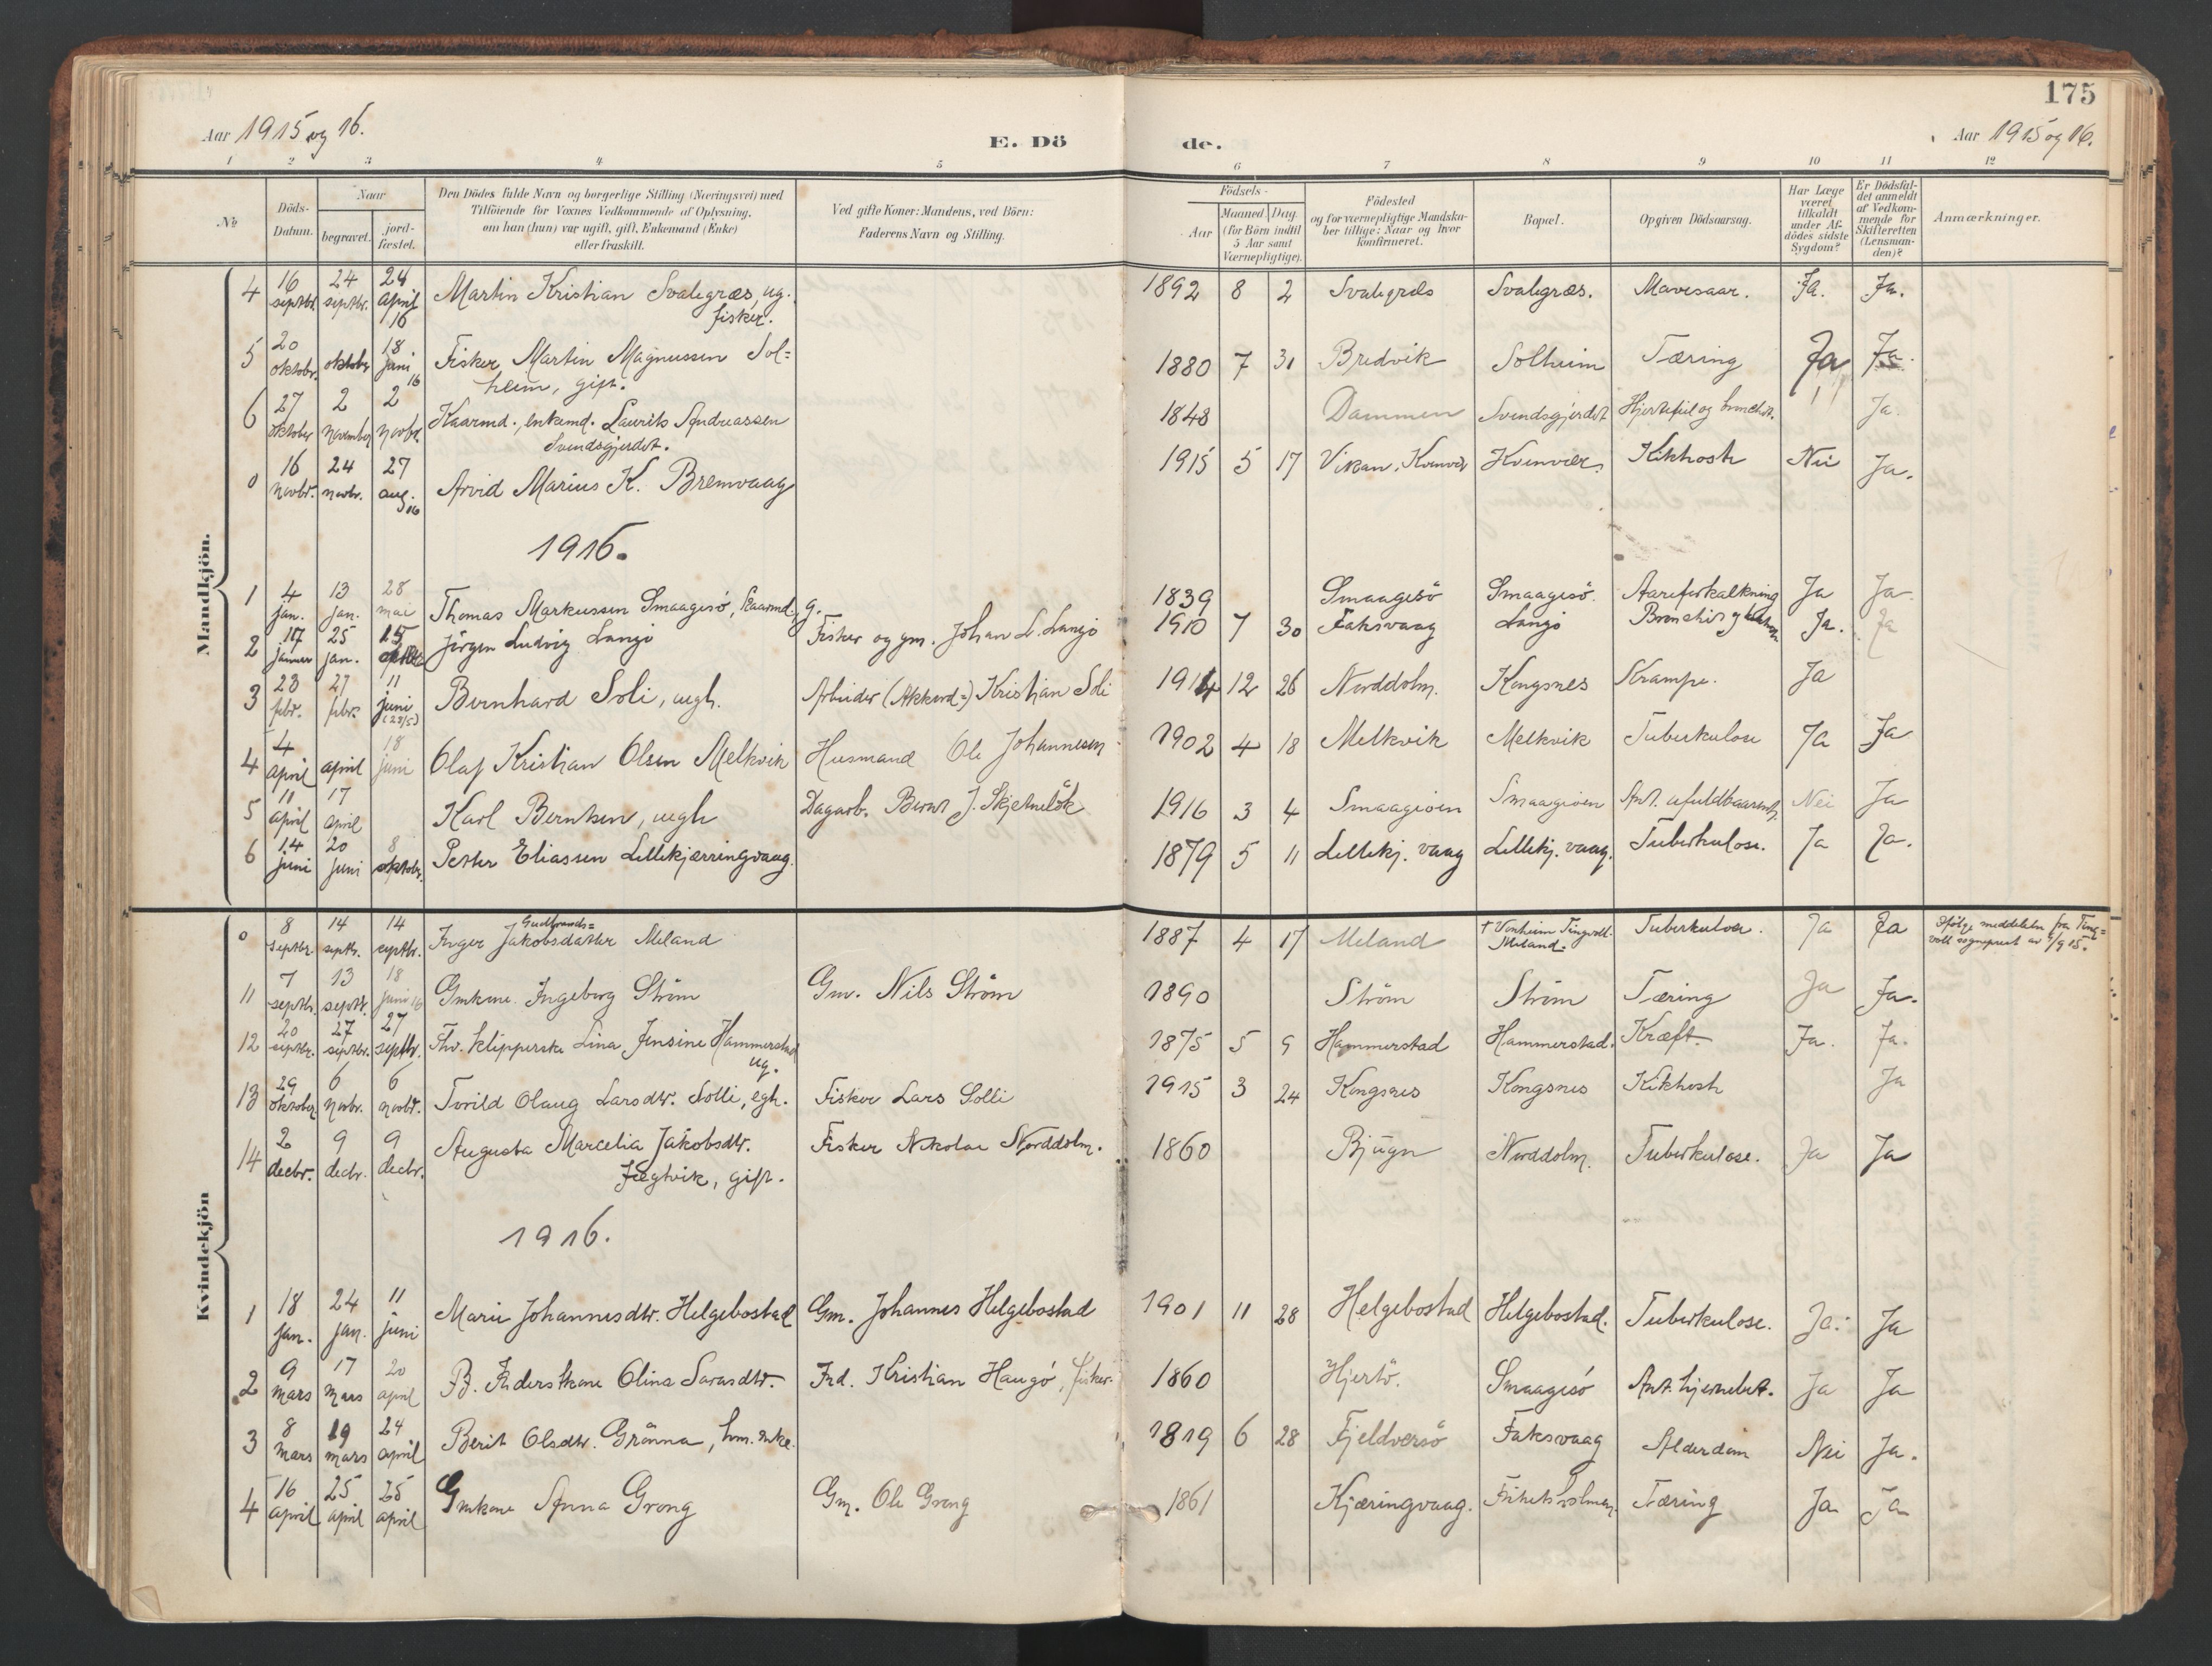 175
Aar 1915 og 16.
E. Dö
de.
Aar 1915 og 16.
1 2 3 4 5 6 7 8 9 10 11 12
№
Döds-Datum.
Naar
begravet.
jord-fæstet.
Den Dödes fulde Navn og borgerlige Stilling (Næringsvei) med
Tilföiende for Voxnes Vedkommende af Oplysning,
om han (hun) var ugift, gift, Enkemand (Enke)
eller fraskilt.
Ved gifte Koner: Mandens, ved Börn:
Faderens Navn og Stilling.
Födsels-
Aar
Maaned Dag.
(for Börn indtil
5 Aar samt
Værnepligtige).
Födested
og for værnepligtige Mandska-
ber tillige: Naar og hvor
konfirmeret.
Bopæl.
Opgiven Dödsaarsag.
Har Læge
været
tilkaldt
under Af-
dödes sidste
Sygdom?
Er Dödsfal-
det anmeldt
af Vedkom-
mende for
Skifteretten
(Lensman-
den)?
Anmærkninger.
Mandkjön.
4 16 septbr. 24 septbr. 24 april 16 Martin Kristian Svalegræs, ug. fisker. 1892 8 2 Svalegræs Svalegræs. Mavesaar. Ja. Ja.
5 20 oktobr. oktober 18 juni 16 Fisker Martin Magnussen Sol=
heim, gift. 1880 7 31 Bredvik Solheim Tæring Ja Ja.
6 27 oktober 2 november 2 novbr. Kaarmd., enkemd. Laurits Andreassen
Svendsgjerdet. 1848 Dammen Svendsgjerdet Hjertefeil og bronchit. Ja.
0 16 novbr. 24 novbr. 27 aug. 16 Arvid Marius K. Bremvaag 1915 5 17 Vikan, Kvenvær Kvenvær. Kikhoste Nei Ja.
1916.
1 4 jan. 13 jan. 28 mai Thomas Markussen Smaagesö, Kaarmd., g. 1839 Smaagesö Smaagesö. Aareforkalkning Ja Ja.
2 17 januar 25 jan. 15 Jörgen Ludvig Langö Fisker og gm. Johan L. Langö 1910 7 30 Faksvaag Langö Ja. Ja
3 23 febr. 27 febr. 11 juni (28/5) Bernhard Soli, uegh. Arbeider (Akkord=) Kristian Soli 1914 12 26 Norddolm. Kongsnes Krampe. Ja
4 4 april april 18 juni Olaf Kristian Olsen Melkvik Husmand Ole Johannesen 1902 4 18 Melkvik Melkvik Tuberkulose Ja Ja
5 11 april 17 april Karl Berntsen, uegh Dagarb. Bernt J. Skjetnelök 1916 3 4 Smaagioen Smaagioen Ant. ufuldbaarent. Nei Ja
6 14 juni 20 juni 8 oktobr. Petter Eliassen Lillekjærringvaag. 1879 5 11 Lillekj. vaag Lillekj. vaag. Tuberkulose. Ja Ja.
Kvindekjön
0 8 septbr. 14 septbr. 14 septbr. Inger Gudbrands= Jakobsdatter Meland 1887 4 17 Meland † Vonheim Tingvoll. Meland. Tuberkulose. Ja Ja Ifölge meddelelse fra Ting=
voll sogneprest av /9 15.
11 7 septbr. 13 septbr. 18 juni 16 Gmkone Ingeborg Ström Gm. Nils Ström 1890 Ström Ström Tæring Ja Ja.
12 20 septbr. 27 septbr. 27 septbr. Fhv. klipperske Lina Jensine Hammerstad ug. 1875 5 9 Hammerstad Hammerstad. Kræft. Ja. Ja.
13 29 oktober 6 novbr. 6 novbr. Torild Olaug Larsdtr. Solli, egh. Fisker Lars Solli 1915 3 24 Kongsnes Kongsnes Kikhost Ja
14 2 decbr. 9 decbr. 9 decbr. Augusta Marcelia Jakobsdtr.
Jægtvik, gift. Fisker Nikolai Norddolm. 1860 Bjugn Norddolm. Tuberkulose. Ja Ja
1916.
1 18 jan. 24 jan. 11 juni Marie Johannesdtr. Helgebostad Gm. Johannes Helgebostad 1901 11 28 Helgebostad Helgebostad. Tuberkulose. Ja. Ja
2 9 mars 17 mars 20 april P. Inderstkone Olina Larasdtr. Ind. Kristian Haugö, fisker. 1860 Hjertö. Smaagesö Ant. hjernebet. Ja Ja
3 8 mars 19 mars 24 april Berit Olsdtr. Grönna, hm. enke. 1819 6 28 Fjeldversö Faksvaag Alderdom Nei Ja.
4 16 april 25 april 25 april Gmkone Anna Grong Gm. Ole Grong 1861 Kjæringvaag. Tæring Ja Ja